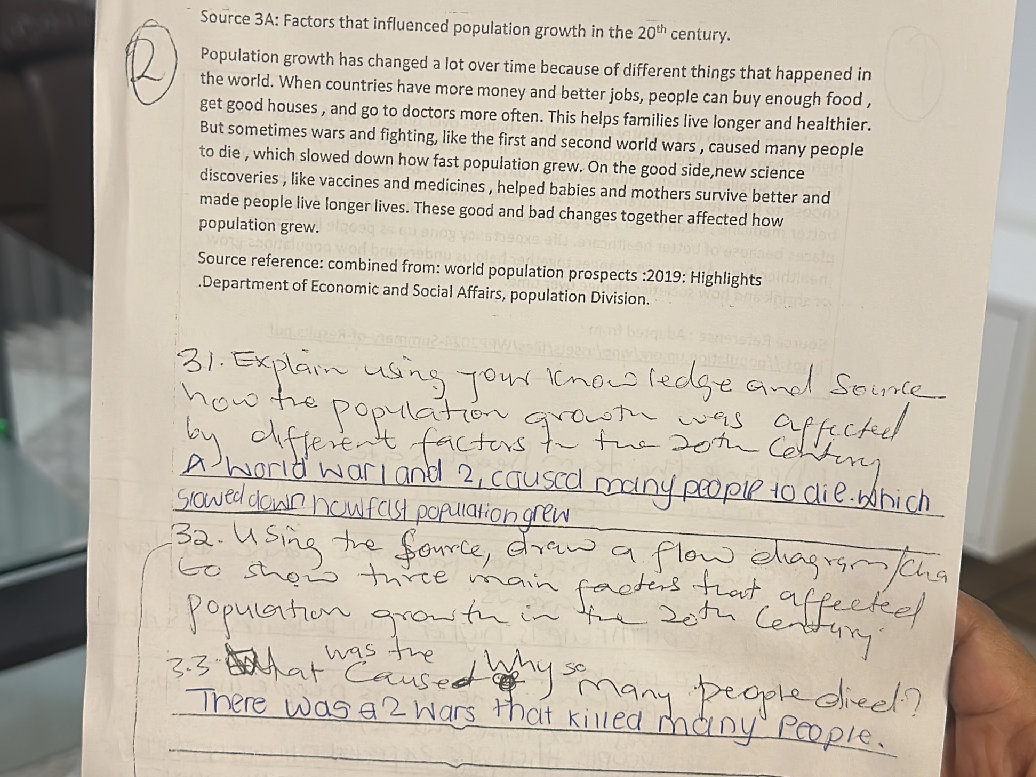 Source 3A: Factors that influenced population growth in the 20th century.
2
Population growth has changed a lot over time because of different things that happened in
the world. When countries have more money and better jobs, people can buy enough food ,
get good houses , and go to doctors more often. This helps families live longer and healthier.
But sometimes wars and fighting, like the first and second world wars , caused many people
to die , which slowed down how fast population grew. On the good side,new science
discoveries , like vaccines and medicines , helped babies and mothers survive better and
made people live longer lives. These good and bad changes together affected how
population grew.
Source reference: combined from: world population prospects :2019: Highlights
.Department of Economic and Social Affairs, population Division.
31. Explain using your knowledge and Source
how the population growth was affected
by different factors in the 20th Century
A world war 1 and 2, caused many people to die. which
slowed down how fast population grew
32. Using the source, draw a flow diagram/cha
to show three main factors that affected
population growth in the 20th Century.
3.3 What was the Cause Why so many people died?
There was a 2 wars that killed many People.